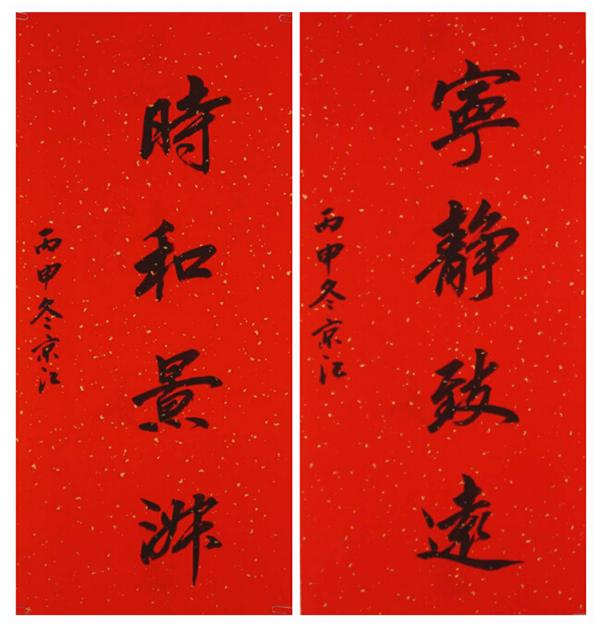 寧靜致遠
丙申冬京江
時和景
丙申冬京江